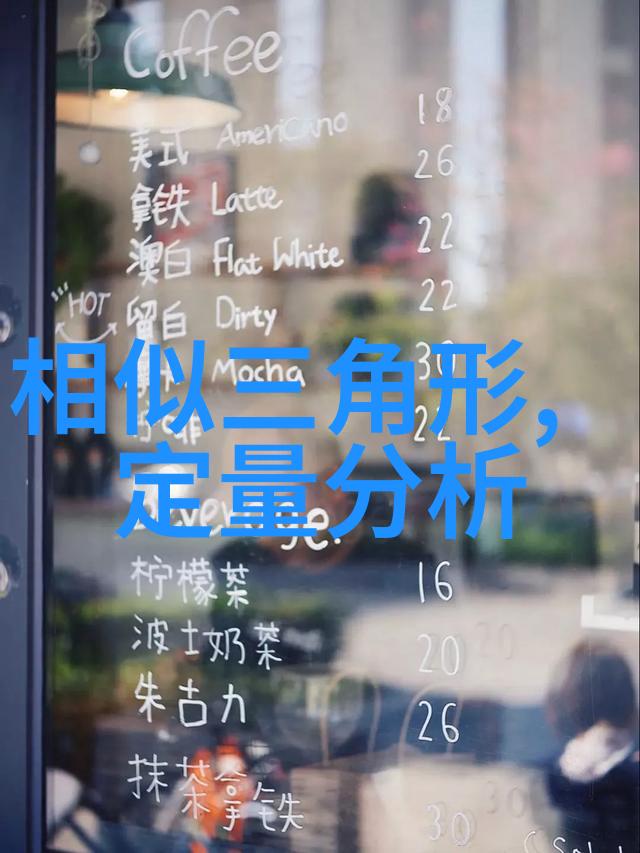 Coffee
美式 Americano 18
拿铁 Latte 26
澳白 Flat White 22
HOT
留白 Dirty 22
Mocha 30
22
相似三角形,
定量分析
Beverage.
柠檬茶 16
波士奶茶 20
朱古力 26
抹茶拿铁 30